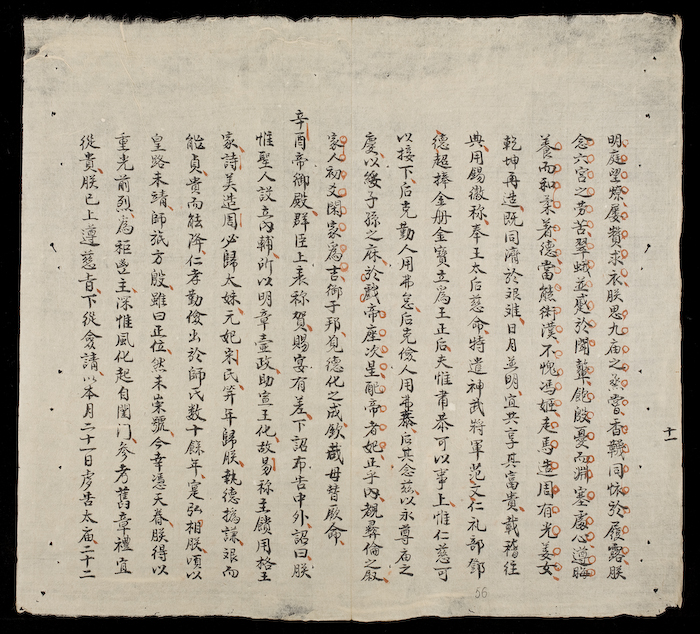 明庭望燎屢賛求衣朕思九庙之烝嘗香轊同怵於履露朕
念六宮之劳苦翠蛾並感於闻鼙飽殷憂而淵塞處心遵晦
養而和柔著德當熊衛漢不愧馮姬走馬造周有光姜女
乾坤再造既同濟於艰难日月並明宜共享其富貴載稽往
典用錫徽称奉王太后慈命特遣神武將軍范文仁礼部鄧
德超捧金册金寳立為王正后夫惟肅恭可以事上惟仁慈可
以接下后克勤人用弗怠后克儉人用弗恭后其念兹以永尊庙之
慶以綏子孫之庥於戲帝座次星配帝者妃正乎内覩彞倫之叙
家人初爻閑家爲吉御于邦見德化之成欽蔵毋替厥命
辛酉帝御殿群臣上表称賀賜宴有差下詔布告中外詔曰朕
惟聖人設立内輔所以明章壼政助宣王化故易称王饋用格王
家詩美造周必歸太姒元妃宋氏笄年歸朕執德撝謙艰而
能貞貴而能降仁孝勤儉出於師氏数十餘年寔弘相朕頃以
皇路未靖師旅方殷雖曰正位然未崇號今幸憑天眷朕得以
重光前烈為秬鬯主深惟風化起自閨门参考舊章禮宜
從貴朕已上遵慈旨下從僉請以本月二十一日虔告太庙二十二
十一
56